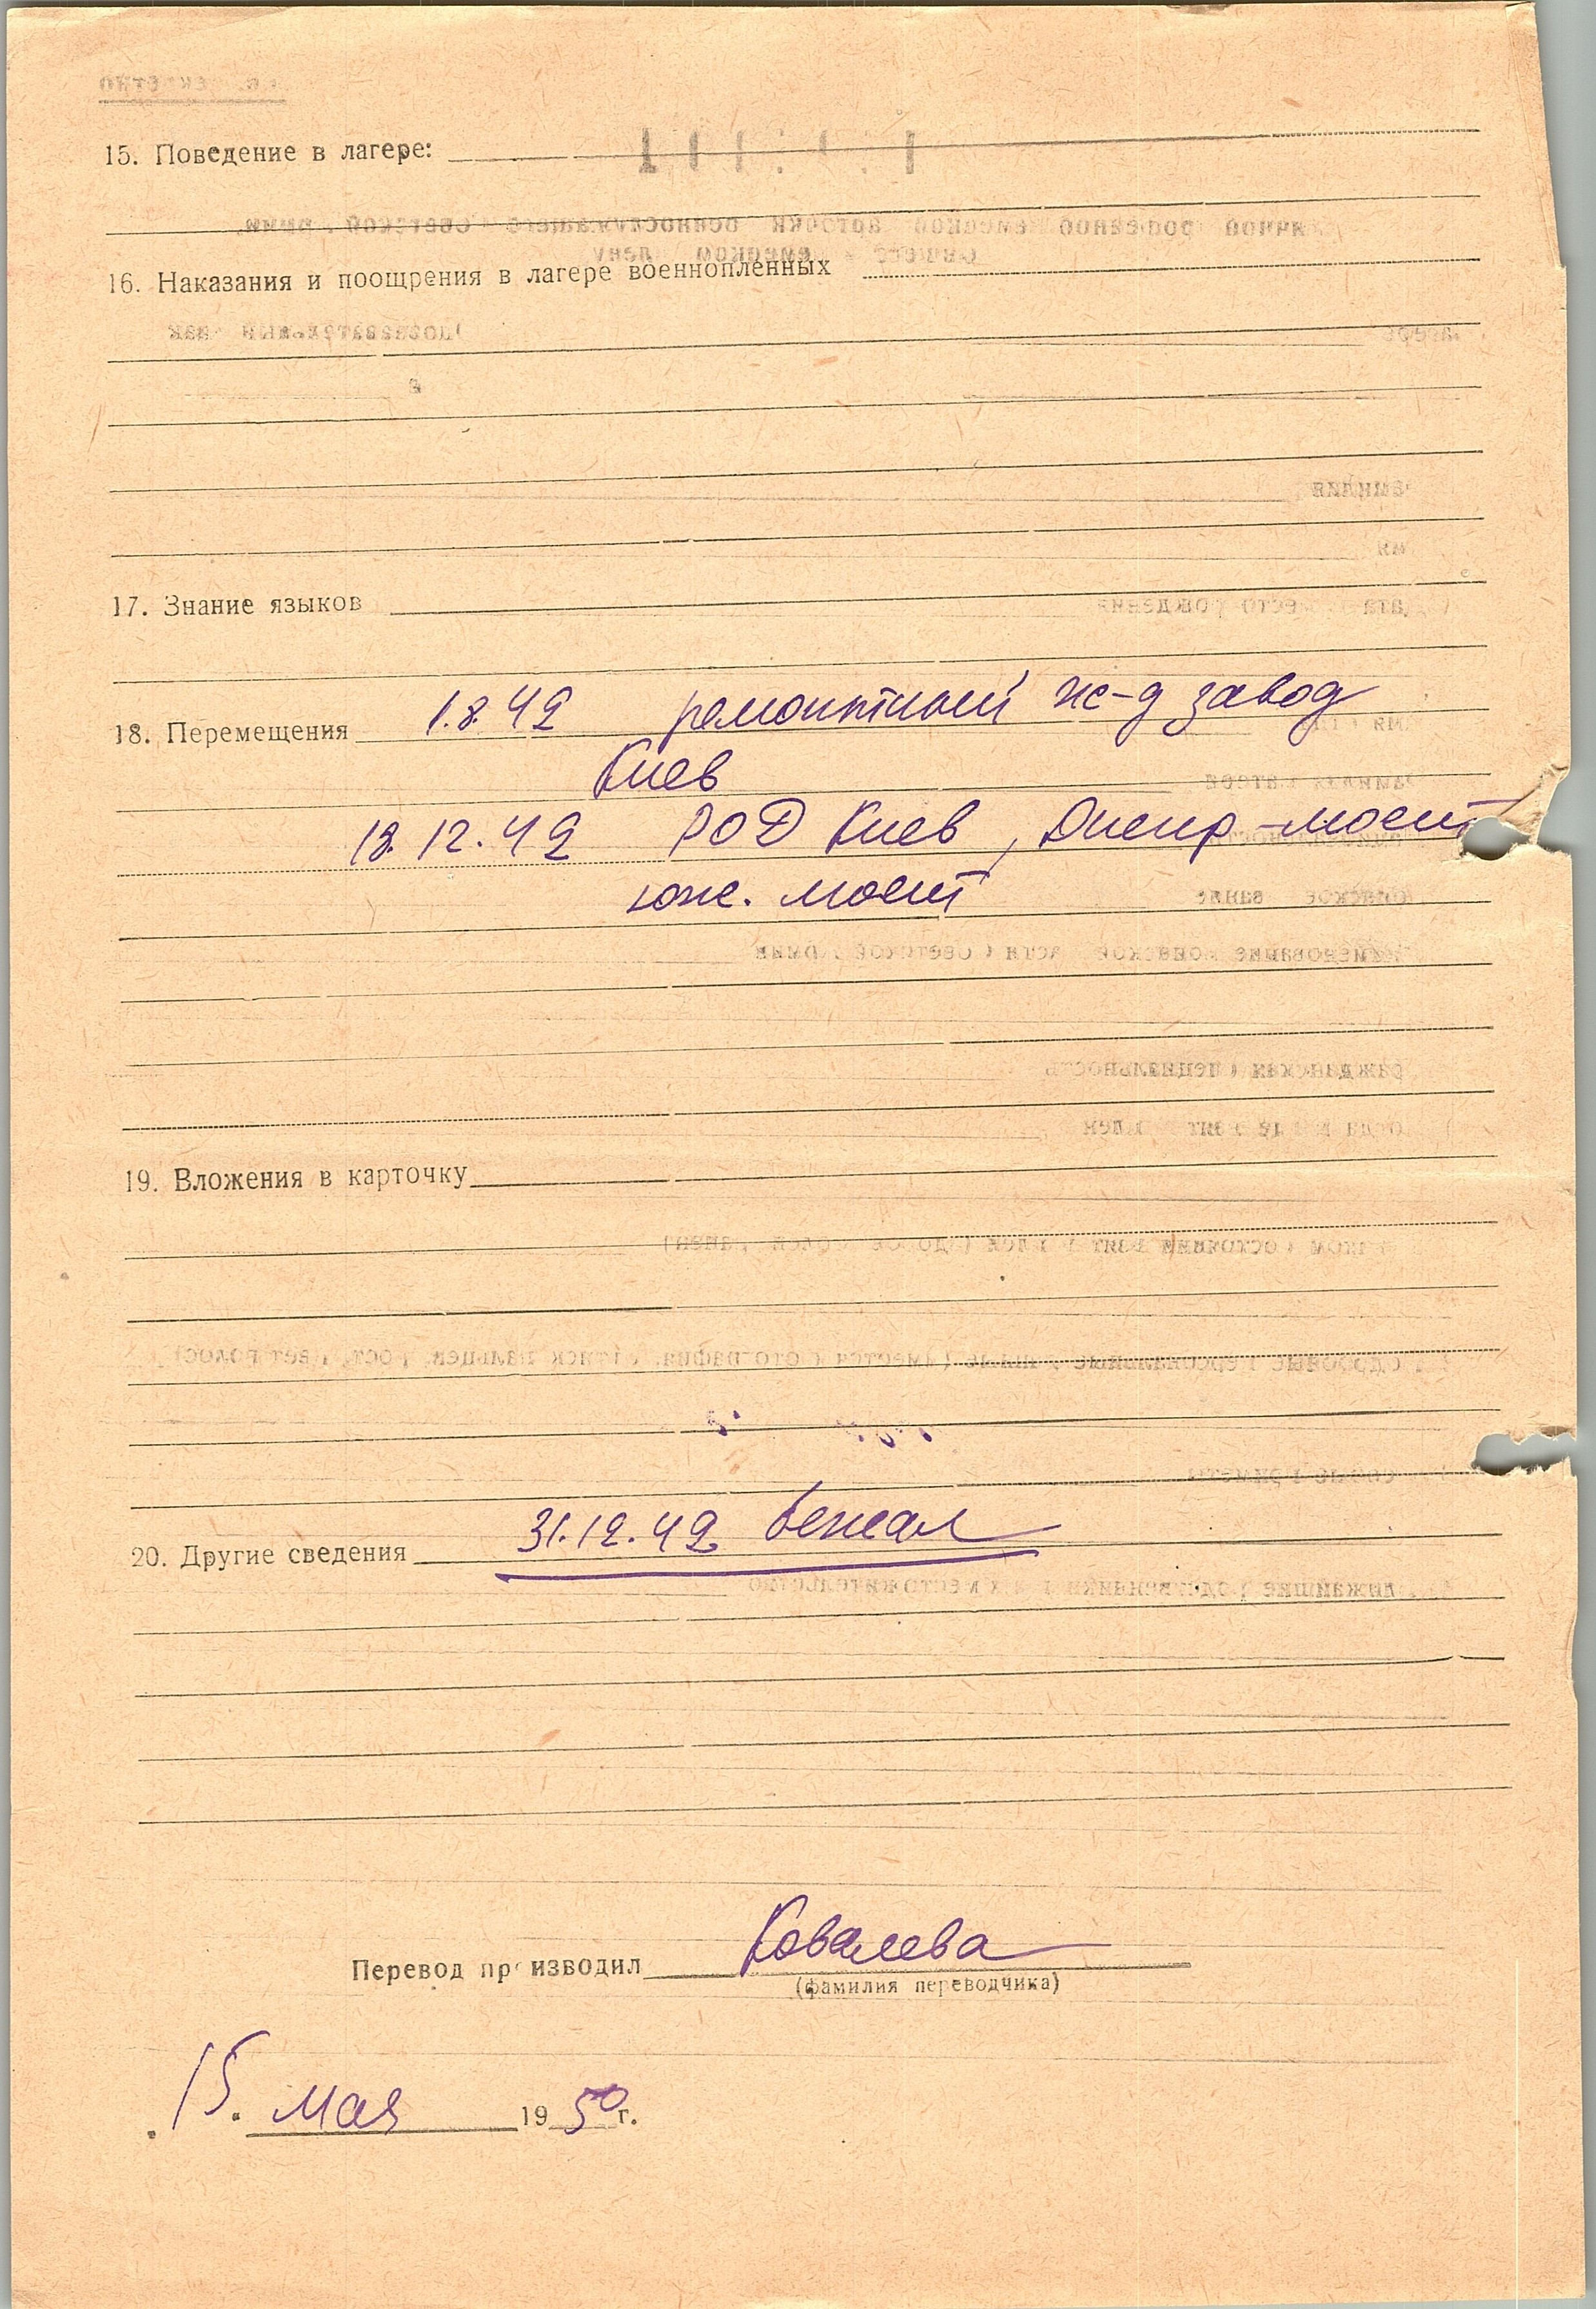 15. Поведение в лагере:
16. Наказания и поощрения в лагере военнопленных
17. Знание языков
18. Перемещения 1.8.42 ремонтный ж-д завод
Киев
18.12.42 РОД Киев, Днепр-мост
юж. мост
19. Вложения в карточку
20. Другие сведения 31.12.42 бежал
Перевод производил Ковалева
(фамилия переводчика)
15. мая 1950 г.